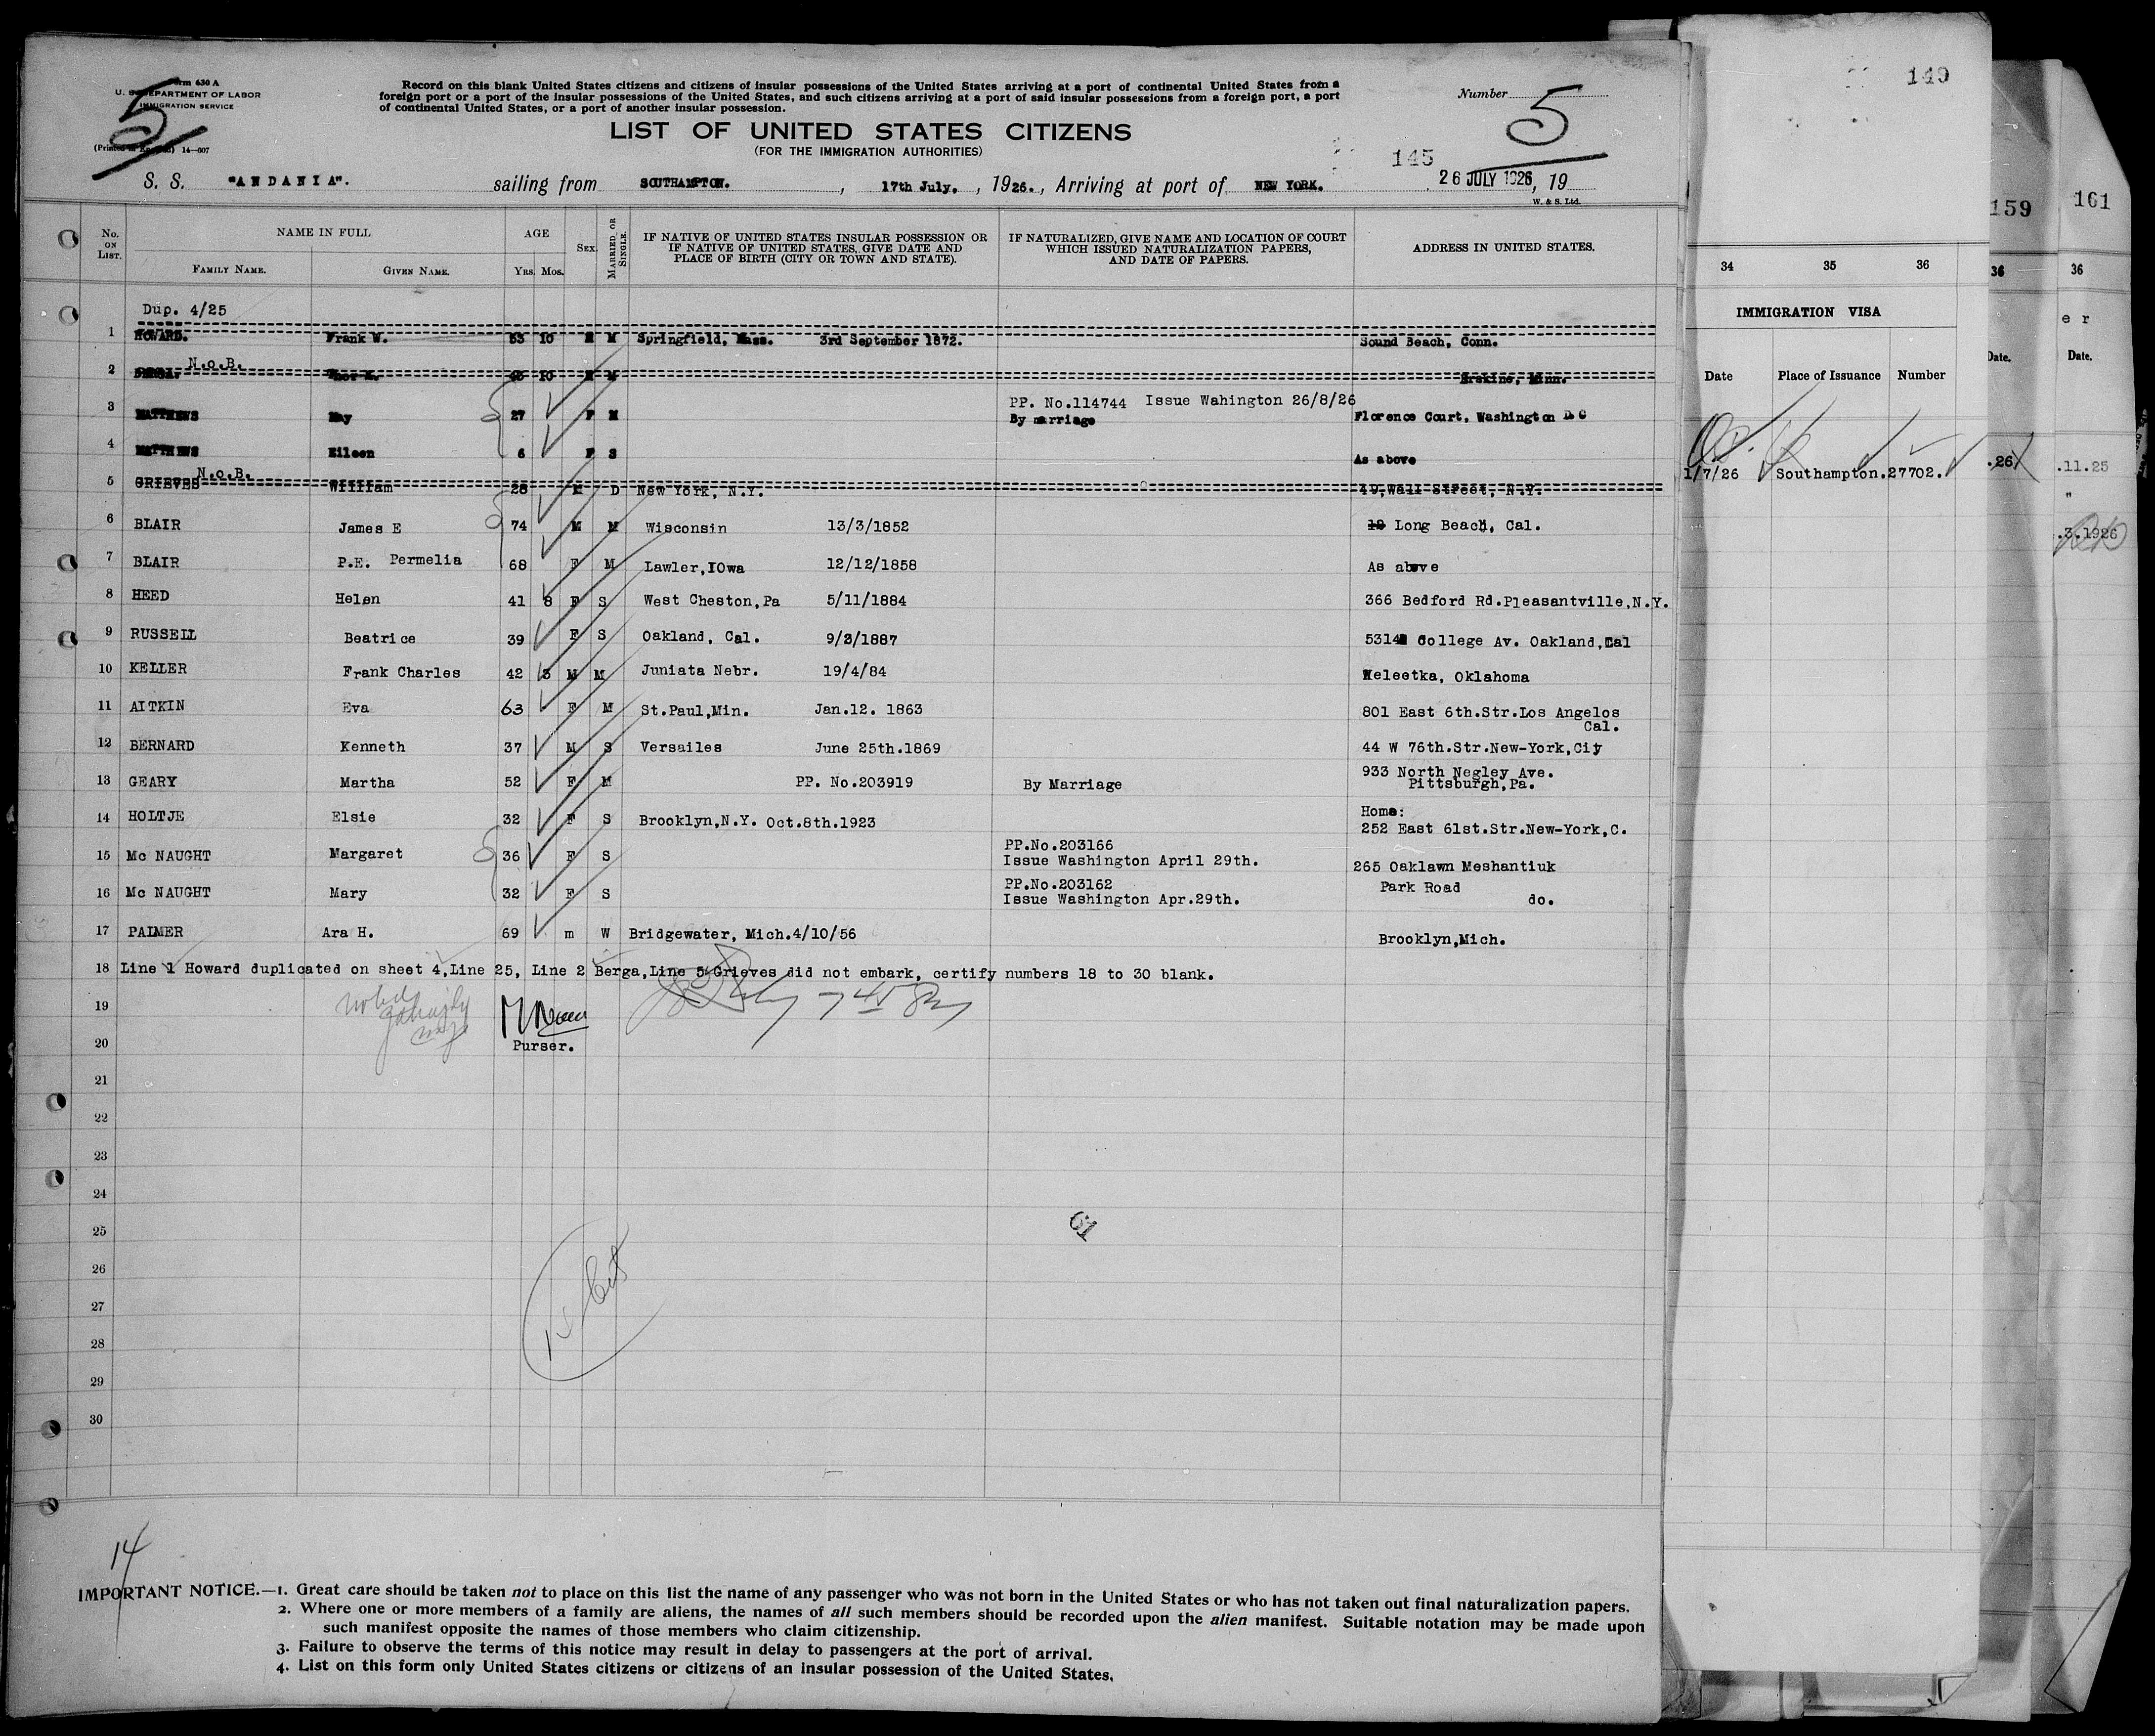 Form 630 A
U. S. DEPARTMENT OF LABOR
IMMIGRATION SERVICE
5
14—607
Record on this blank United States citizens and citizens of insular possessions of the United States arriving at a port of continental United States from a
foreign port or a port of the insular possessions of the United States, and such citizens arriving at a port of said insular possessions from a foreign port, a port
of continental United States, or a port of another insular possession.
Number 5
LIST OF UNITED STATES CITIZENS
(FOR THE IMMIGRATION AUTHORITIES)
145
S. S. "ANDANIA". sailing from SOUTHAMPTON. , 17th July. , 1926. , Arriving at port of NEW YORK. 26 JULY 1926, 19
W. & S. Ltd.
No. ON LIST.
NAME IN FULL
FAMILY NAME.
GIVEN NAME.
AGE
YRS. MOS.
SEX.
MARRIED OR SINGLE.
IF NATIVE OF UNITED STATES INSULAR POSSESSION OR
IF NATIVE OF UNITED STATES, GIVE DATE AND
PLACE OF BIRTH (CITY OR TOWN AND STATE).
IF NATURALIZED, GIVE NAME AND LOCATION OF COURT
WHICH ISSUED NATURALIZATION PAPERS,
AND DATE OF PAPERS.
ADDRESS IN UNITED STATES.
Dup. 4/25
1 HOWARD. Frank W. 53 10 M M Springfield, Mass. 3rd September 1872. Sound Beach, Conn.
N.o.B.
2 45 10 M M Erskine, Minn.
PP. No.114744 Issue Wahington 26/8/26
3 MATTHEWS May 27 F M By marriage Florence Court, Washington D C
4 MATTHEWS Eileen 6 F S As above
N.o.B.
5 GRIEVES William 28 M D New York, N.Y. 49,Wall Street, N.Y.
6 BLAIR James E 74 M M Wisconsin 13/3/1852 Long Beach, Cal.
7 BLAIR P.E. Permelia 68 F M Lawler,IOwa 12/12/1858 As above
8 HEED Helen 41 8 F S West Cheston,Pa 5/11/1884 366 Bedford Rd.Pleasantville,N.Y.
9 RUSSELL Beatrice 39 F S Oakland, Cal. 9/2/1887 5314 College Av. Oakland,Cal
10 KELLER Frank Charles 42 3 M M Juniata Nebr. 19/4/84 Weleetka, Oklahoma
11 AITKIN Eva 63 F M St.Paul,Min. Jan.12. 1863 801 East 6th.Str.Los Angelos
Cal.
12 BERNARD Kenneth 37 M S Versailes June 25th.1869 44 W 76th.Str.New-York,City
13 GEARY Martha 52 F M PP. No.203919 By Marriage 933 North Negley Ave.
Pittsburgh,Pa.
14 HOLTJE Elsie 32 F S Brooklyn,N.Y. Oct.8th.1923 Home:
252 East 61st.Str.New-York,C.
15 Mc NAUGHT Margaret 36 F S PP.No.203166
Issue Washington April 29th. 265 Oaklawn Meshantiuk
16 Mc NAUGHT Mary 32 F S PP.No.203162 Park Road
Issue Washington Apr.29th. do.
17 PALMER Ara H. 69 m W Bridgewater, Mich.4/10/56 Brooklyn,Mich.
18 Line 1 Howard duplicated on sheet 4,Line 25, Line 2 Berga,Line 5 Grieves did not embark, certify numbers 18 to 30 blank.
19
Purser.
20
21
22
23
24
25
61
26
27
28
29
30
14
IMPORTANT NOTICE.—1. Great care should be taken not to place on this list the name of any passenger who was not born in the United States or who has not taken out final naturalization papers.
2. Where one or more members of a family are aliens, the names of all such members should be recorded upon the alien manifest. Suitable notation may be made upon
such manifest opposite the names of those members who claim citizenship.
3. Failure to observe the terms of this notice may result in delay to passengers at the port of arrival.
4. List on this form only United States citizens or citizens of an insular possession of the United States.
149
34 35 36
IMMIGRATION VISA
Date Place of Issuance Number
1/7/26 Southampton. 27702.
159
36
Date.
.26
161
36
e r
Date.
.11.25
"
.3.1926